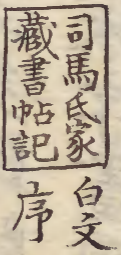 司馬氏家
藏書帖記
白文
序